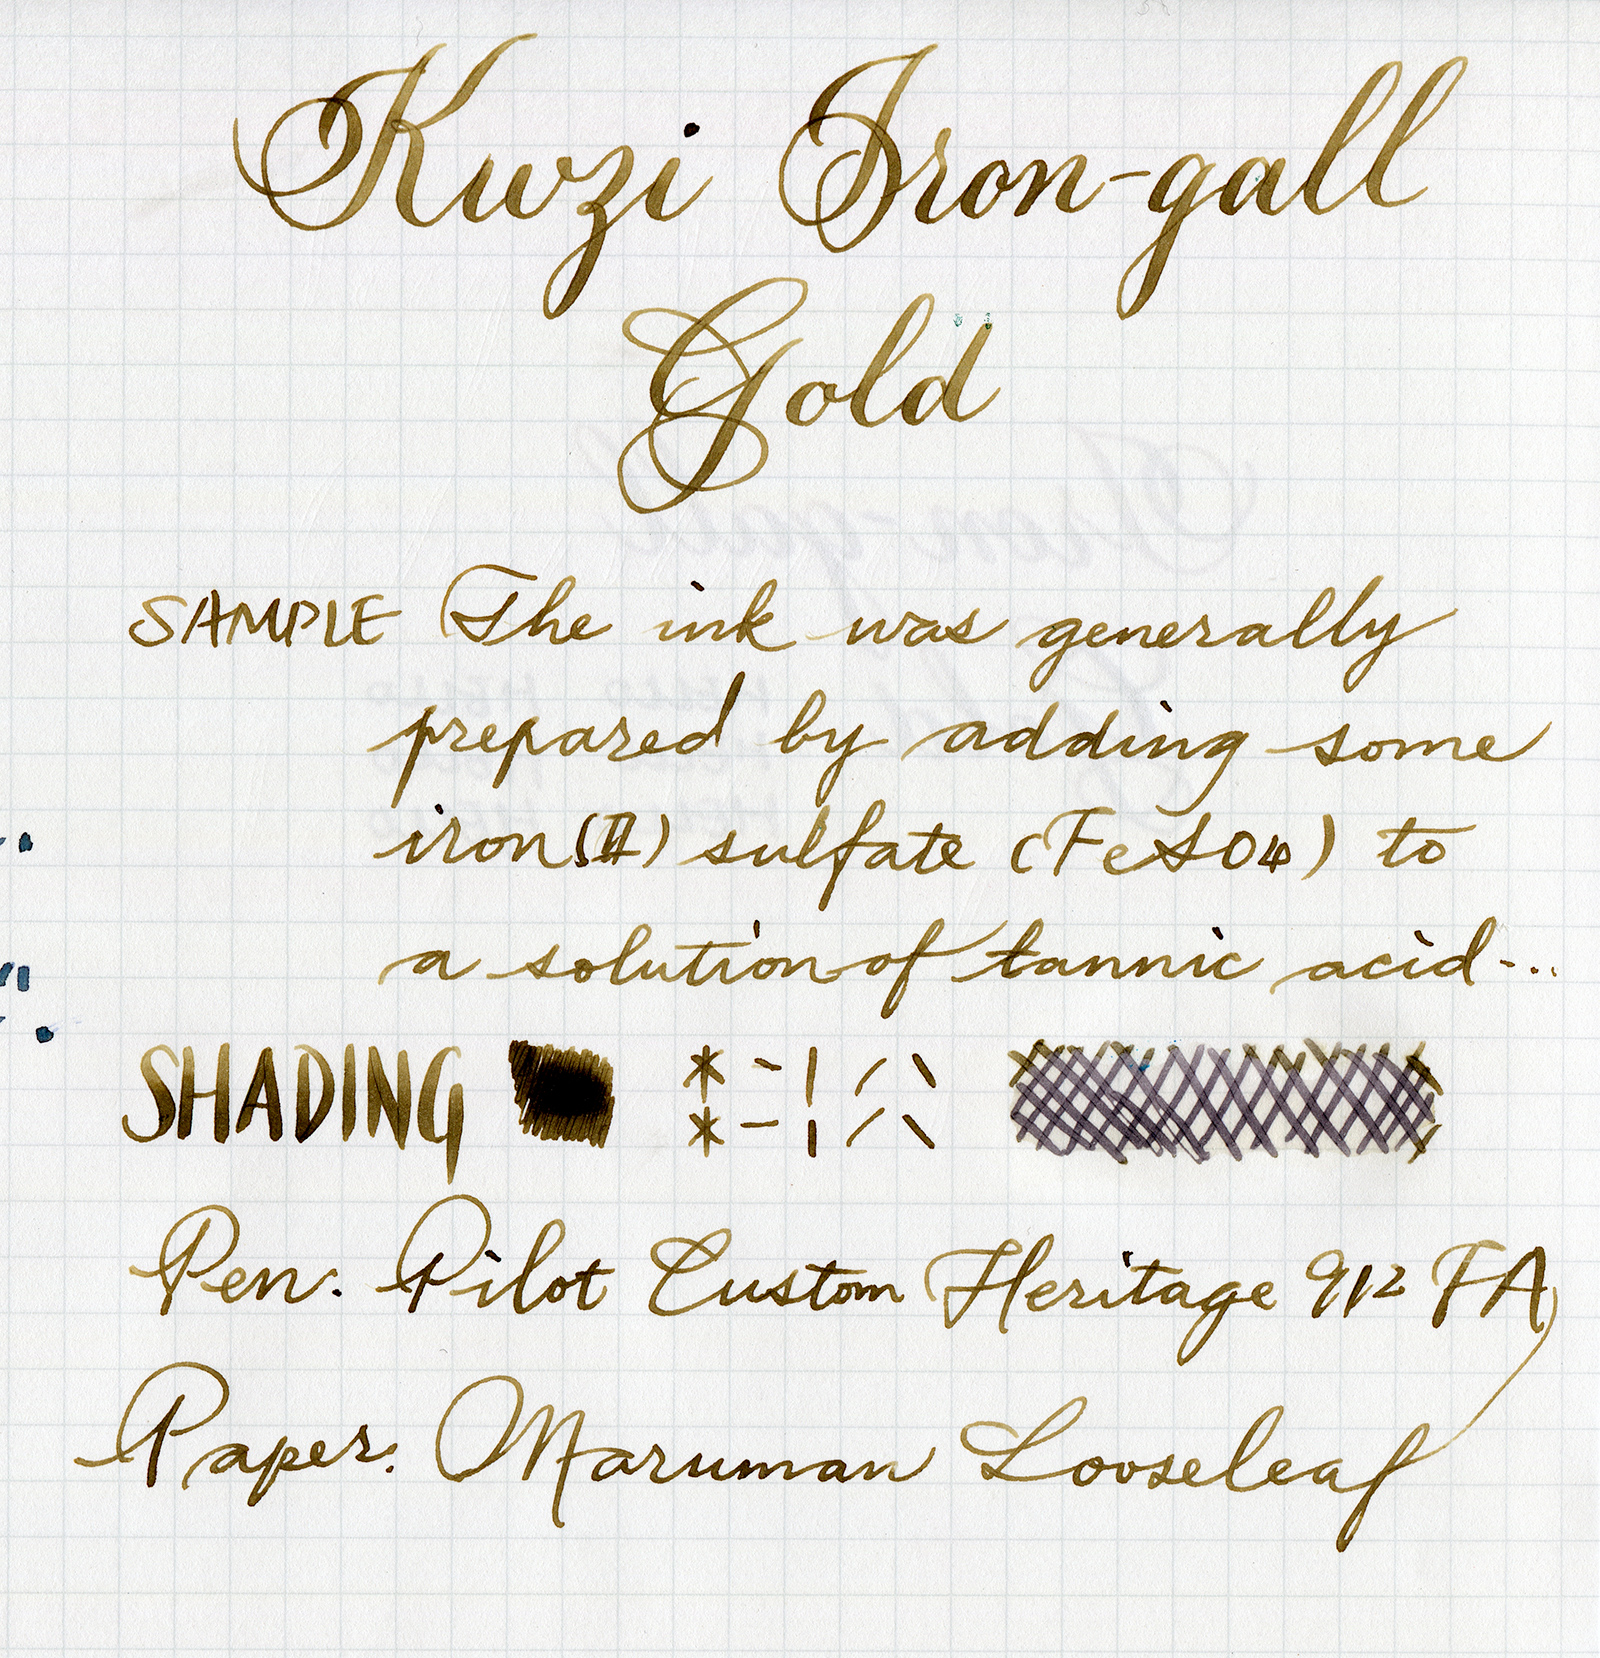 Kwzi Iron-gall
Gold
SAMPLE The ink was generally
prepared by adding some
iron(II) sulfate (FeSO4) to
a solution of tannic acid...
SHADING
Pen: Pilot Custom Heritage 912 FA
Paper: Maruman Looseleaf